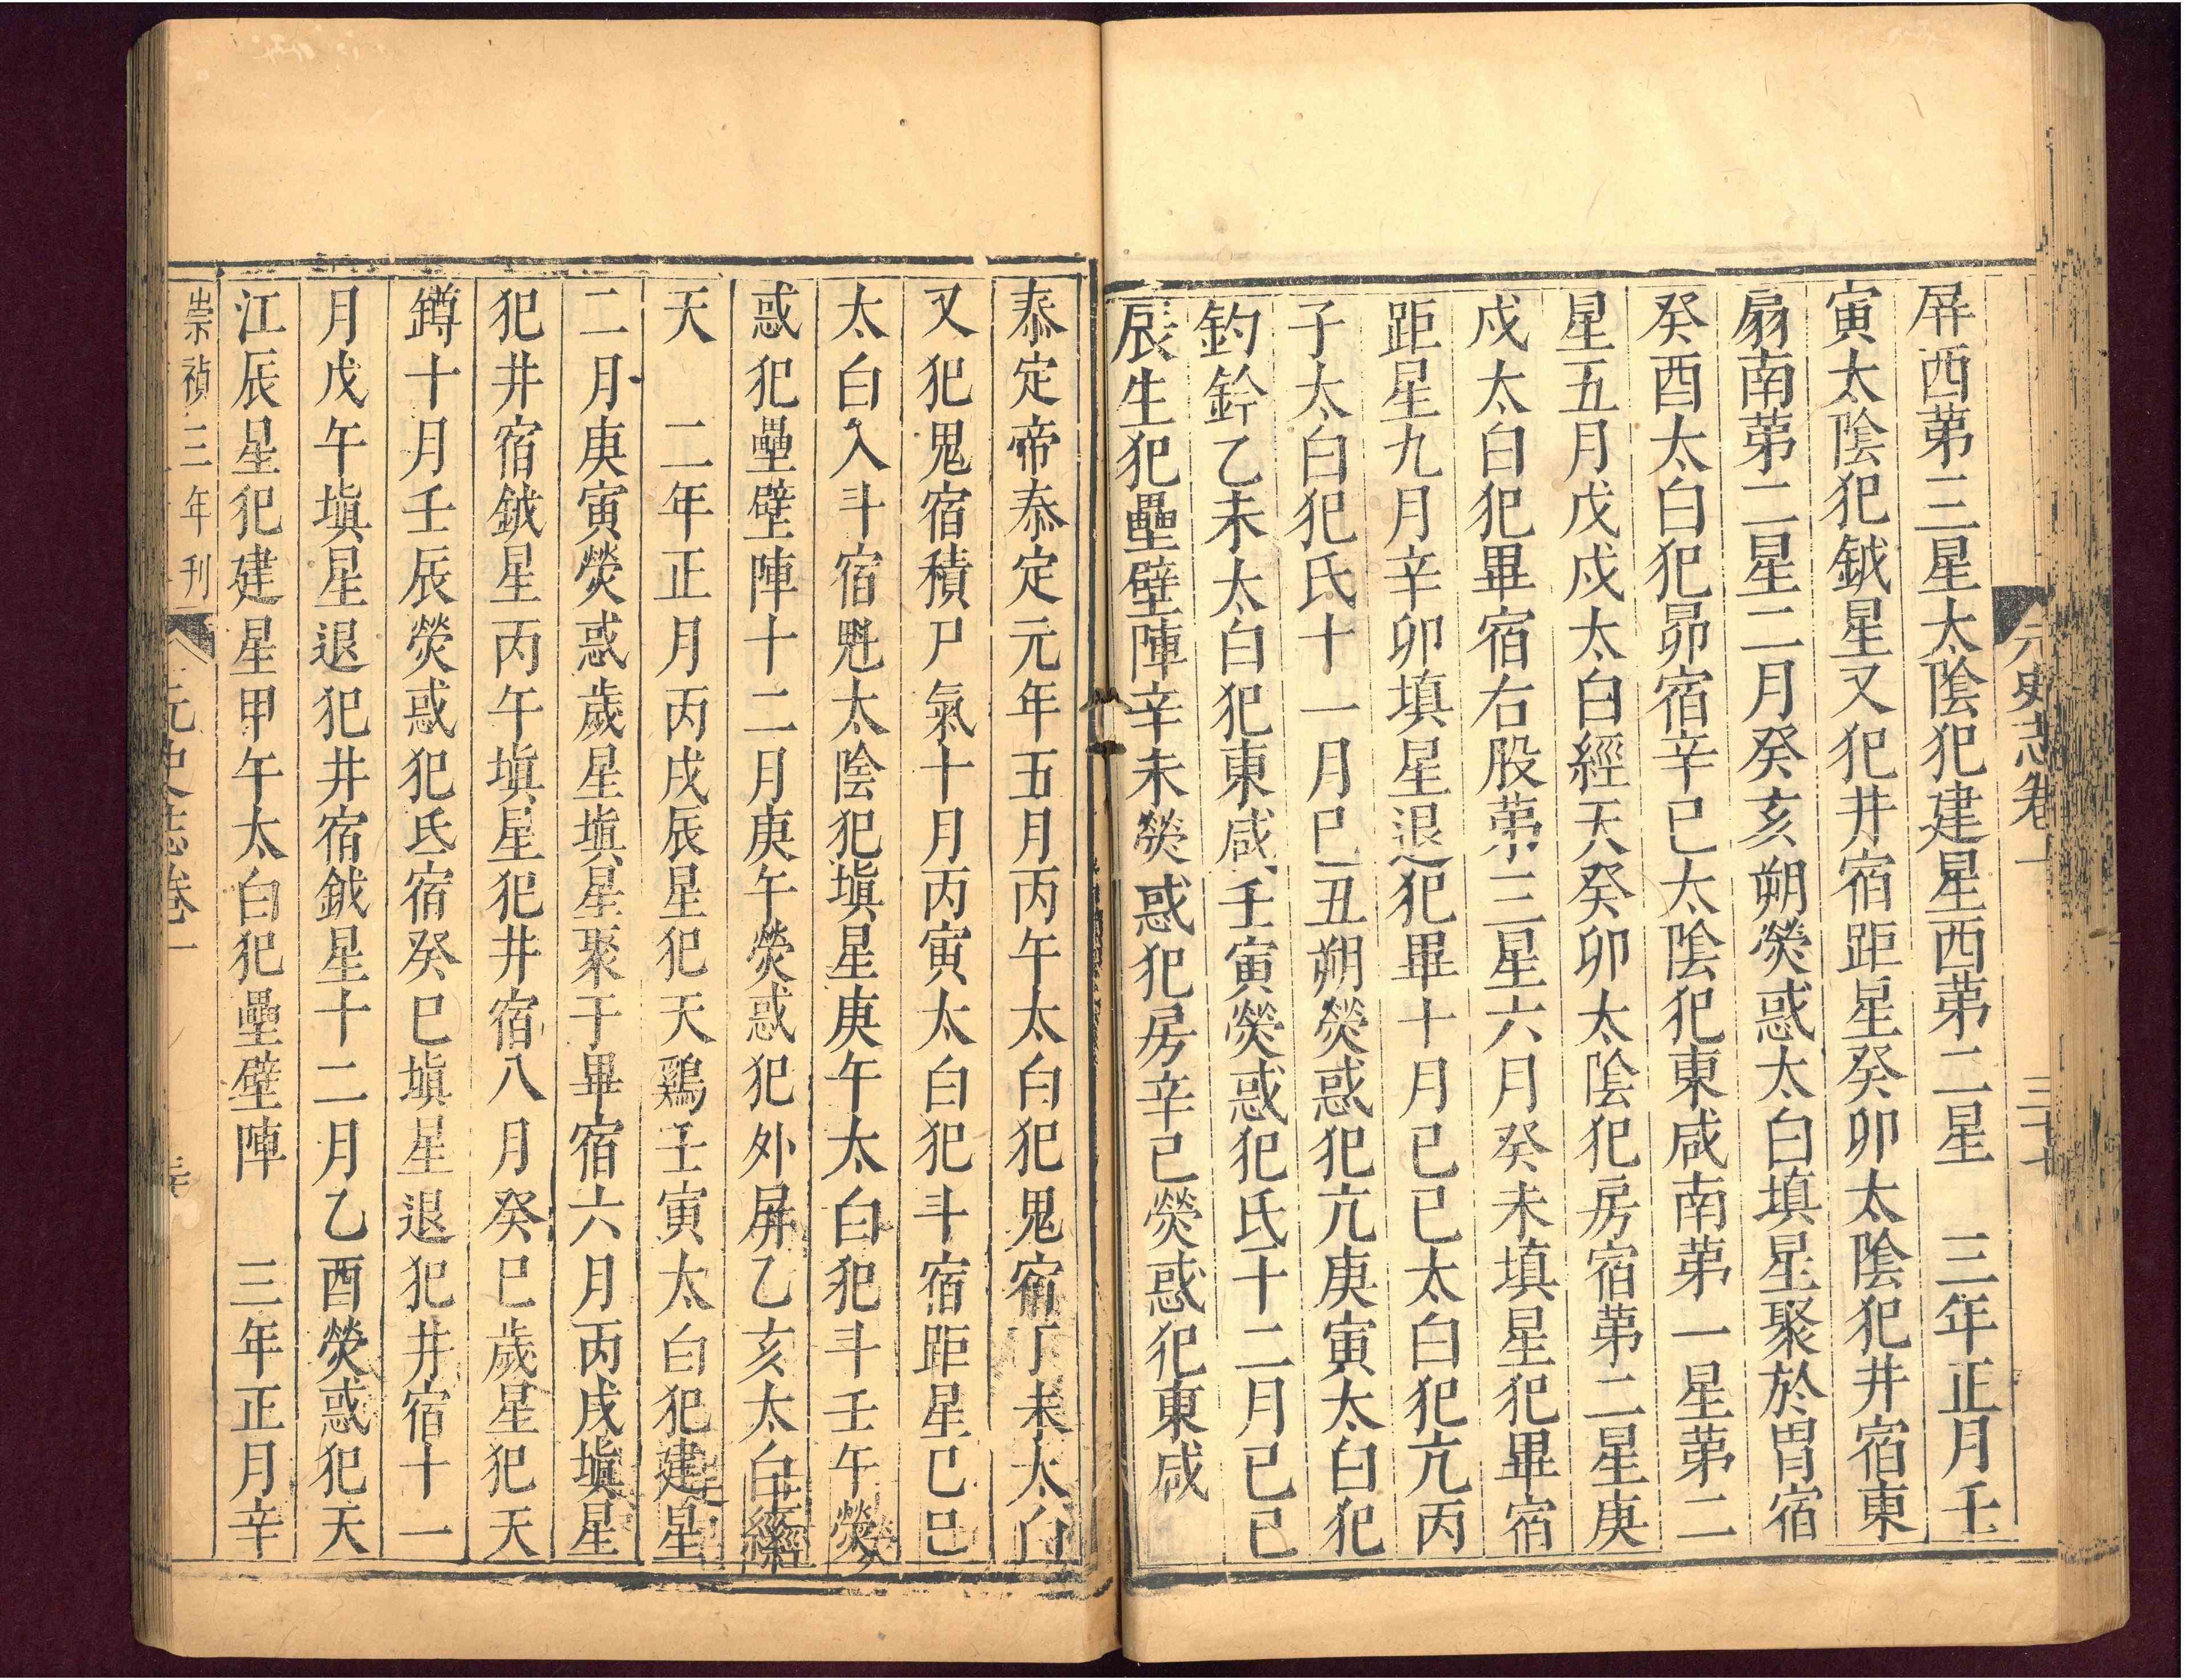 元史志卷一
三十七
屏西第三星太陰犯建星西第二星 三年正月壬
寅太陰犯鉞星又犯井宿距星癸卯太陰犯井宿東
扇南第二星二月癸亥朔熒惑太白填星聚於胃宿
癸酉太白犯昴宿辛巳太陰犯東咸南第一星第二
星五月戊戌太白經天癸卯太陰犯房宿第二星庚
戌太白犯畢宿右股第三星六月癸未填星犯畢宿
距星九月辛卯填星退犯畢十月己巳太白犯亢丙
子太白犯氐十一月己丑朔熒惑犯亢庚寅太白犯
鈎鈐乙未太白犯東咸壬寅熒惑犯氐十二月己巳
辰星犯壘壁陣辛未熒惑犯房辛巳熒惑犯東咸
泰定帝泰定元年五月丙午太白犯鬼宿丁未太白
又犯鬼宿積尸氣十月丙寅太白犯斗宿距星己巳
太白入斗宿魁太陰犯塡星庚午太白犯斗壬午熒
惑犯壘壁陣十二月庚午熒惑犯外屏乙亥太白經
天 二年正月丙戌辰星犯天鷄壬寅太白犯建星
二月庚寅熒惑歲星塡星聚于畢宿六月丙戌塡星
犯井宿鉞星丙午塡星犯井宿八月癸巳歲星犯天
鐏十月壬辰熒惑犯氐宿癸巳塡星退犯井宿十一
月戊午塡星退犯井宿鉞星十二月乙酉熒惑犯天
江辰星犯建星甲午太白犯壘壁陣 三年正月辛
崇禎三年刊
元史志卷一